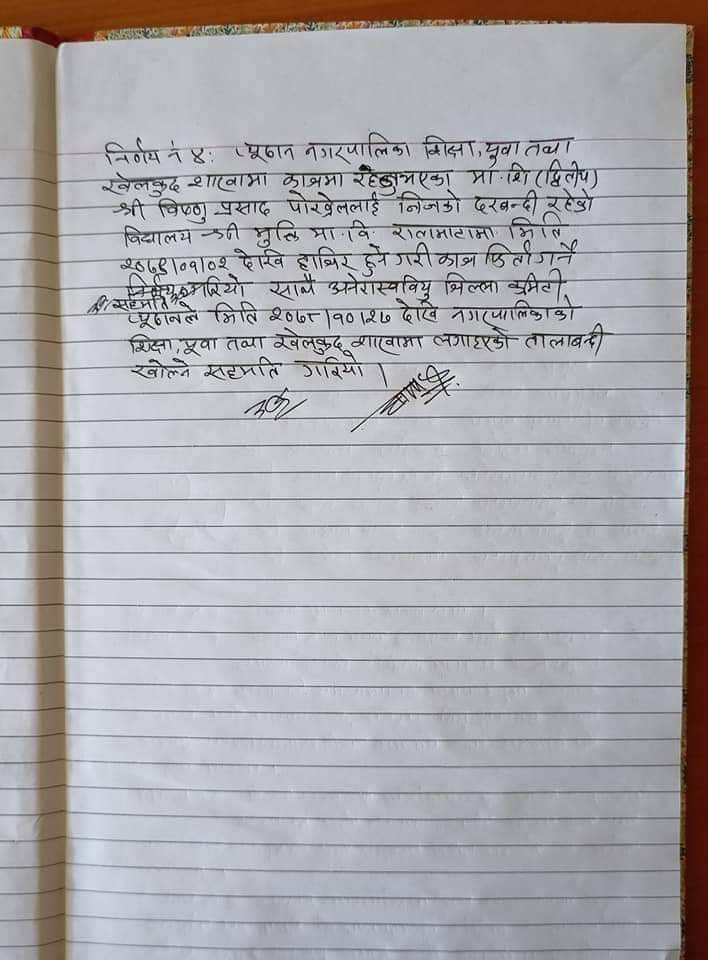 निर्णय नं ४: प्यूठान नगरपालिका शिक्षा, युवा तथा
खेलकुद शाखामा काजमा रहेका मा.शि (द्वितीय)
श्री विष्णु प्रसाद पोखेललाई निजको दरबन्दी रहेको
विद्यालय श्री मुक्ति मा. वि. रालामाटामा मिति
देखि हाजिर हुने गरी काज फिर्ता गर्ने
सहमति गरियो साथै अनेरास्ववियु जिल्ला कमिटी
प्यूठानले मिति २०७८।१०।२७ देखि नगरपालिकाको
शिक्षा, युवा तथा खेलकुद शाखामा लगाइएको तालाबन्दी
खोल्ने सहमति गरियो।